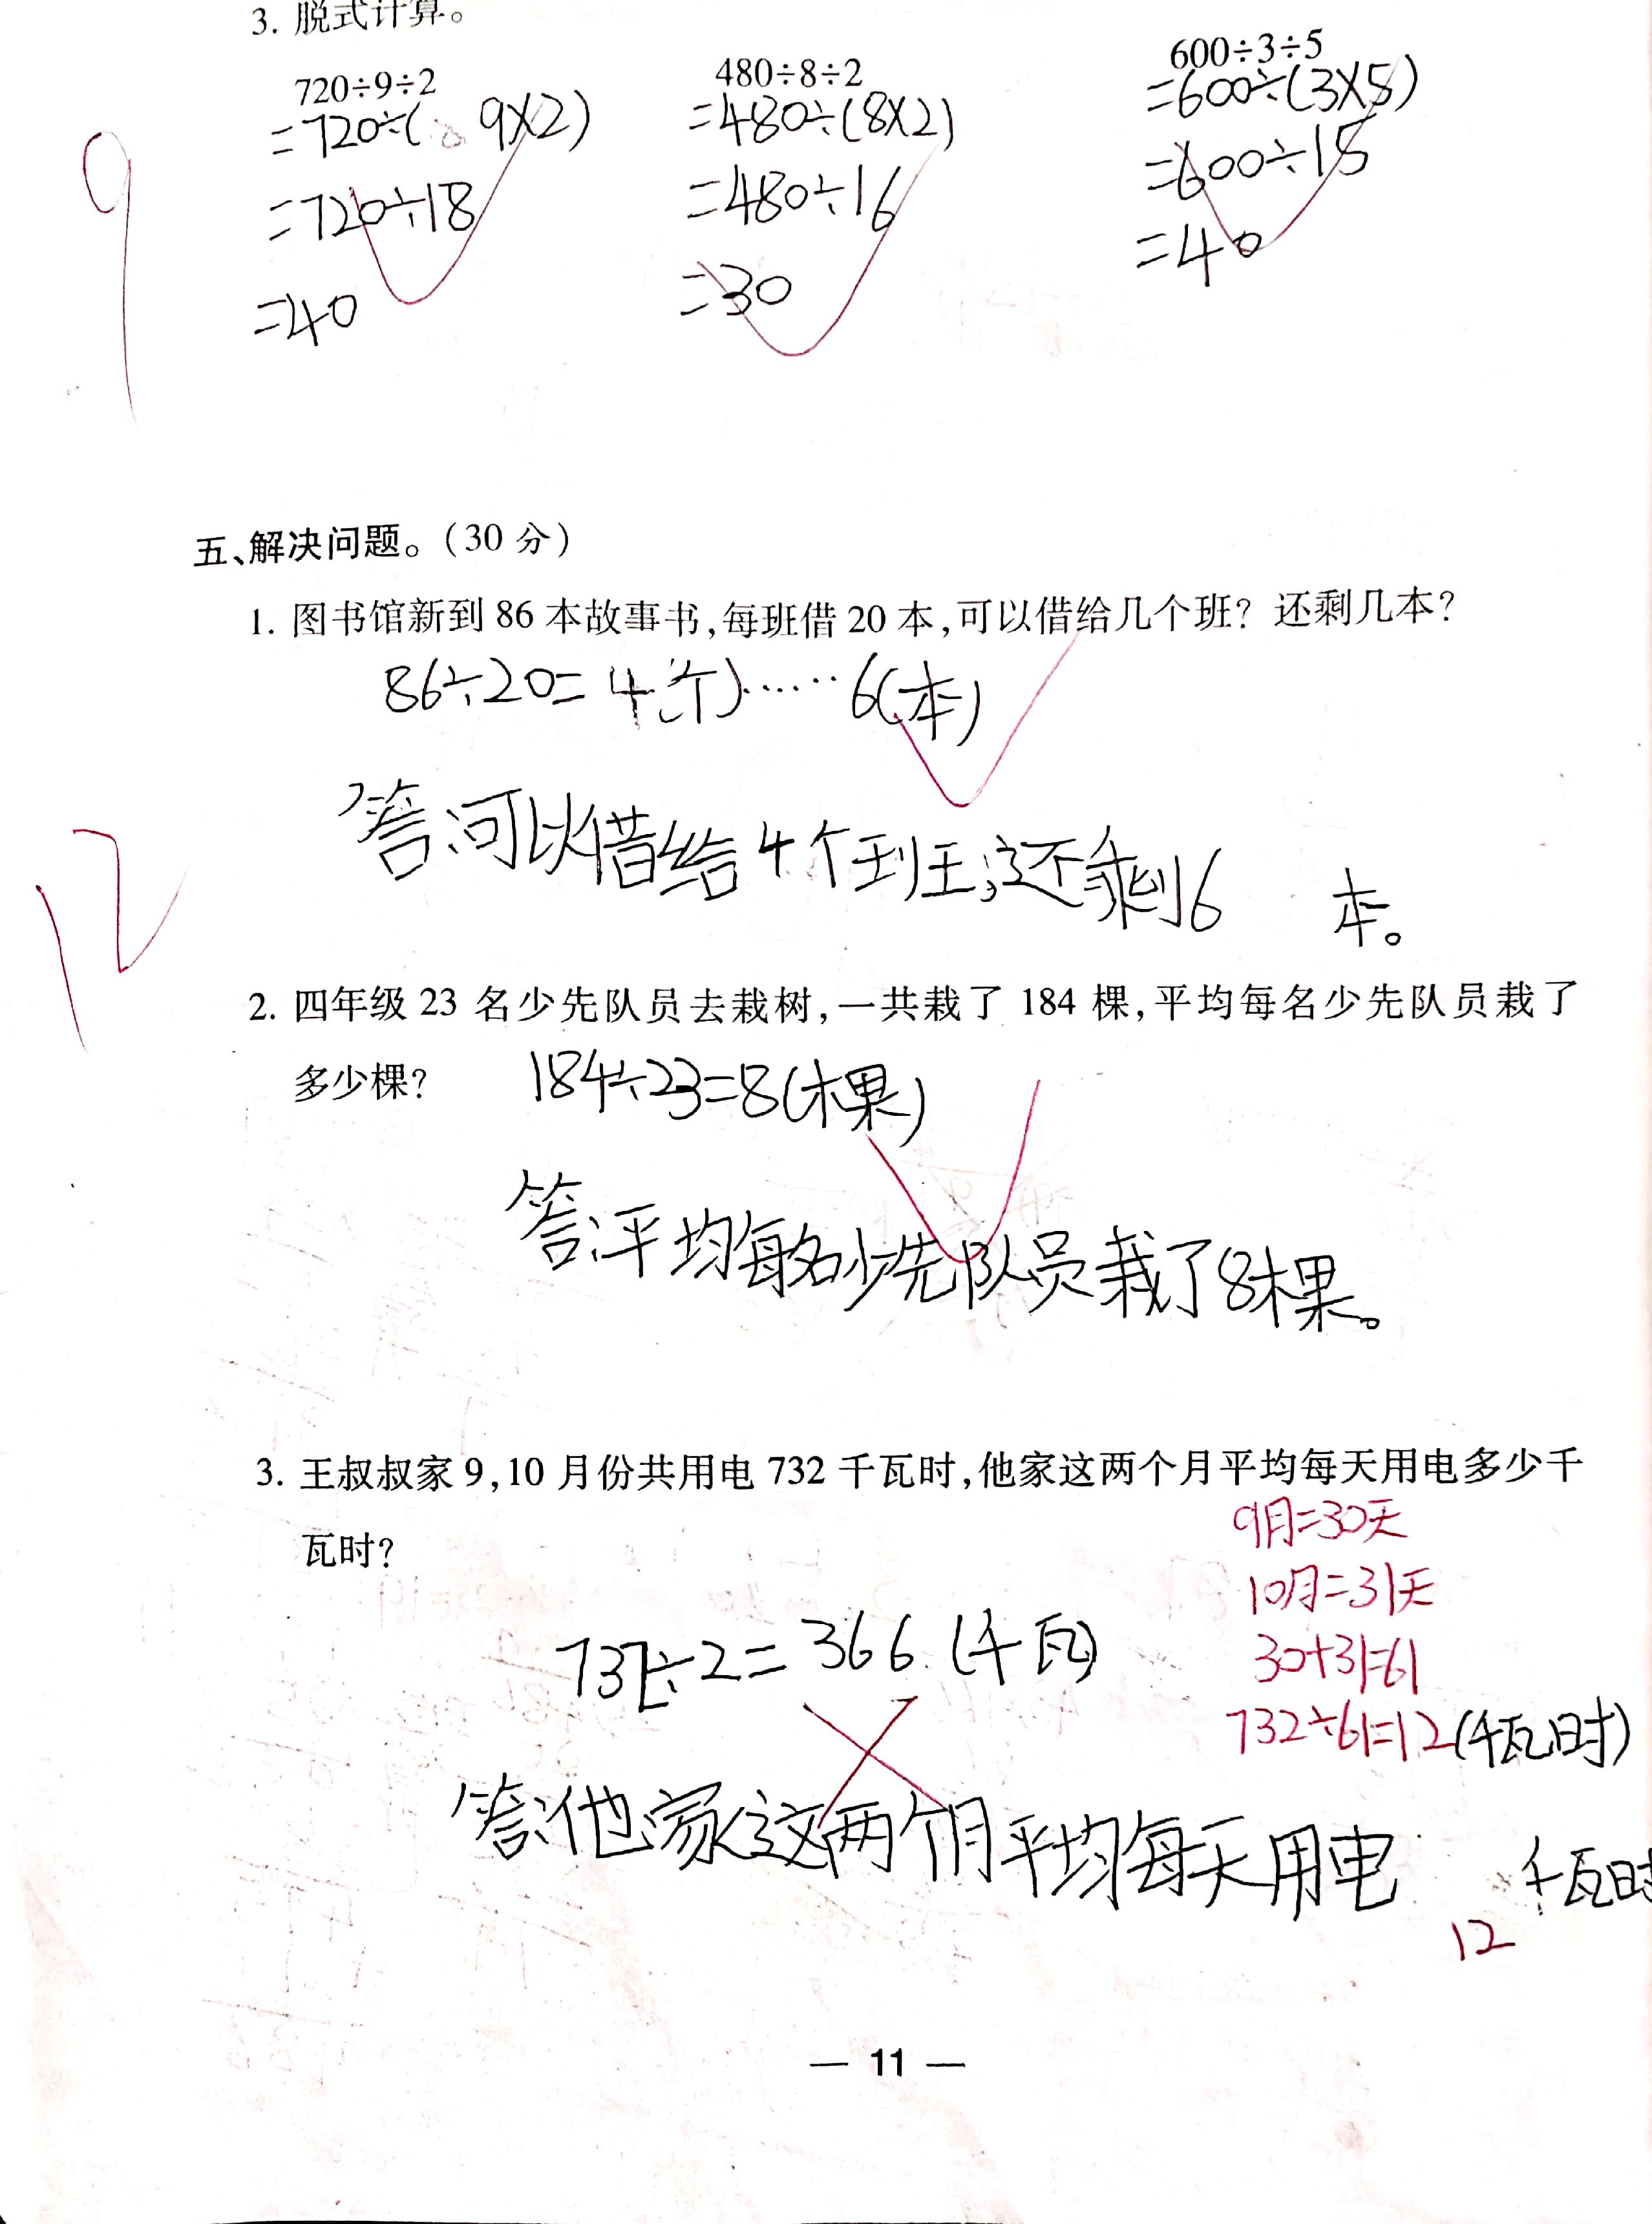 3. 脱式计算。
720÷9÷2 480÷8÷2 600÷3÷5
=720÷( 9×2) =480÷(8×2) =600÷(3×5)
=720÷18 =480÷16 =600÷15
=40 =30 =40
9
五、解决问题。(30 分)
1. 图书馆新到 86 本故事书,每班借 20 本,可以借给几个班? 还剩几本?
86÷20=4(个)……6(本)
答:可以借给4个班,还剩6 本。
12
2. 四年级 23 名少先队员去栽树,一共栽了 184 棵,平均每名少先队员栽了
多少棵? 184÷23=8(棵)
答:平均每名少先队员栽了8棵。
3. 王叔叔家 9,10 月份共用电 732 千瓦时,他家这两个月平均每天用电多少千
瓦时?
9月=30天
10月=31天
30+31=61
732÷61=12(千瓦时)
732÷2=366(千瓦)
答:他家这两个月平均每天用电 12 千瓦时
— 11 —